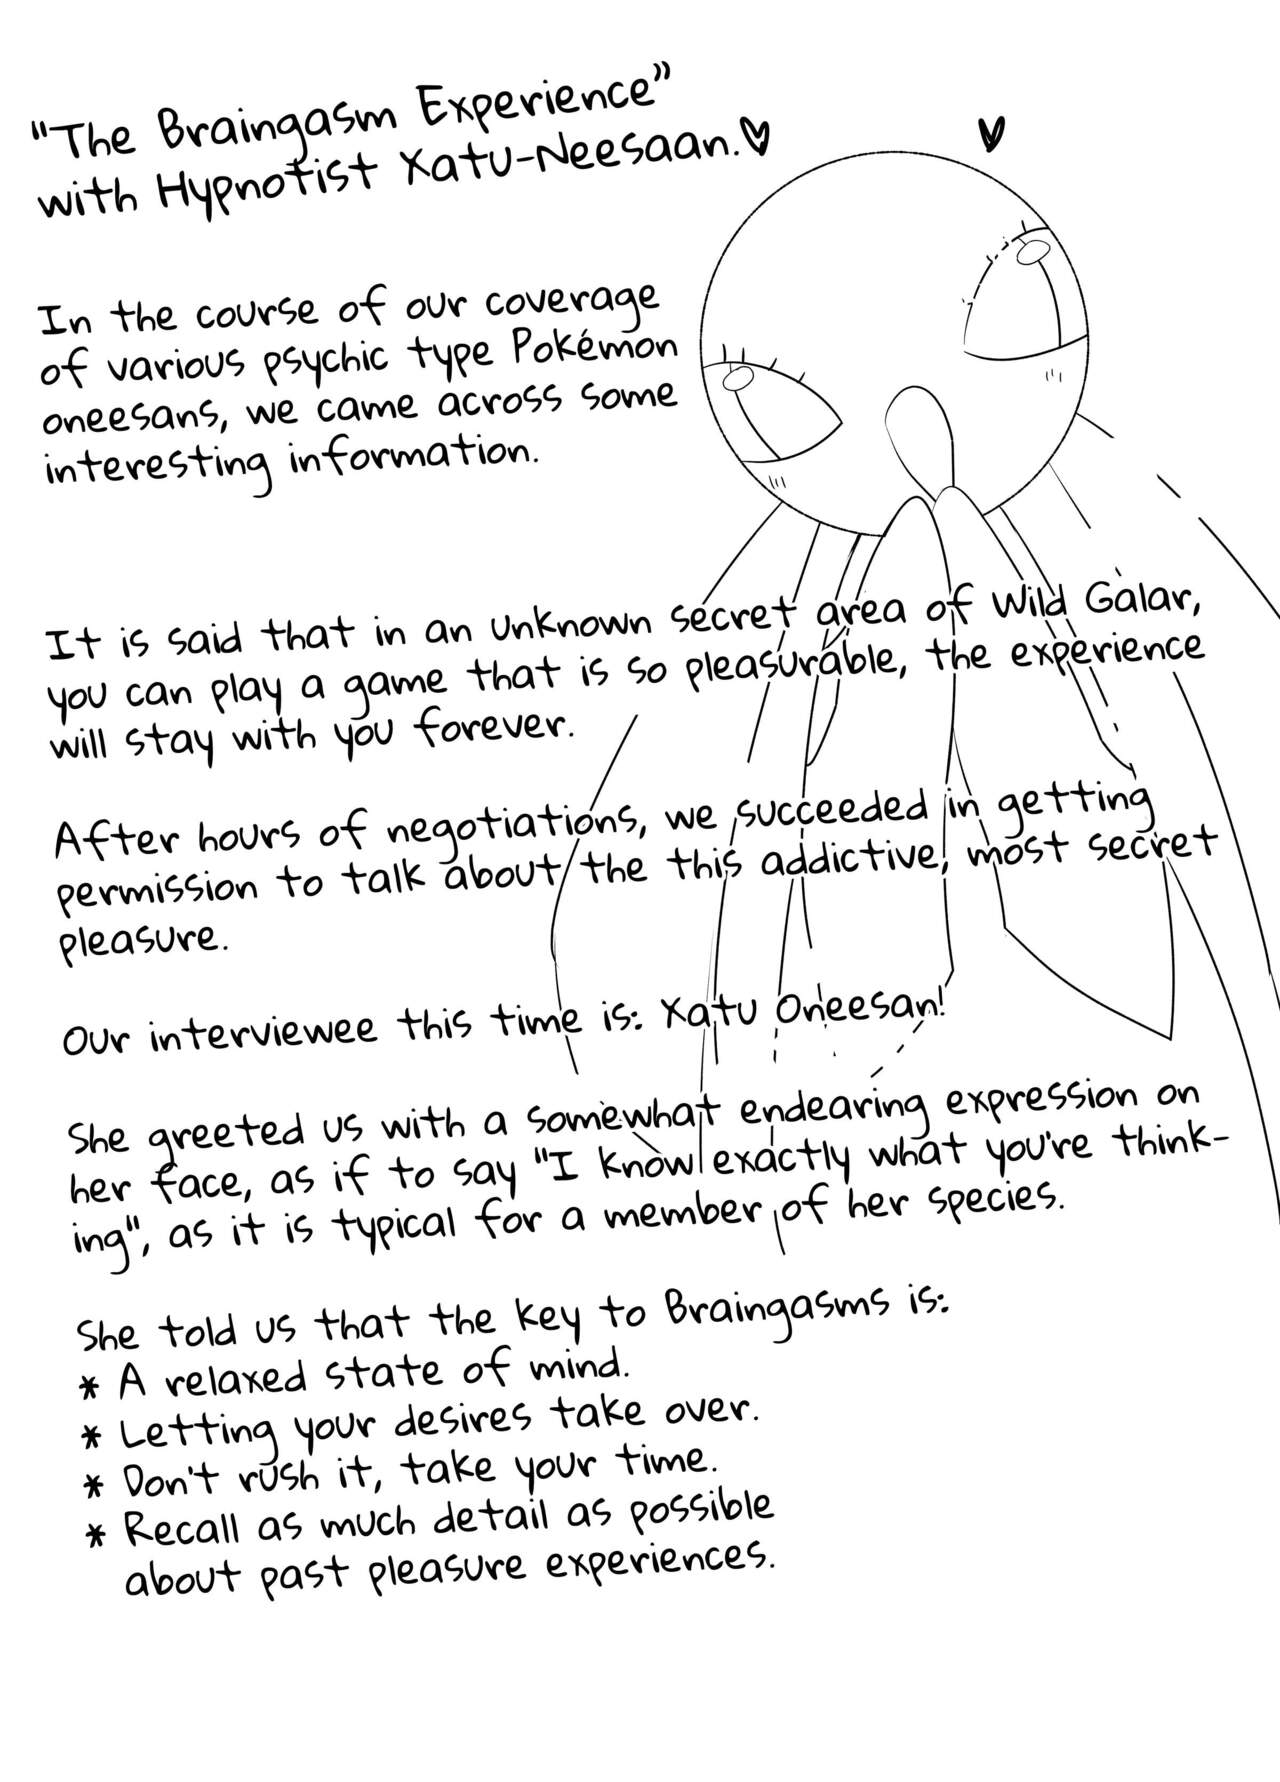 "The Braingasm Experience"
with Hypnotist Xatu-Neesaan.♥
In the course of our coverage
of various psychic type Pokémon
oneesans, we came across some
interesting information.
It is said that in an unknown secret area of Wild Galar,
you can play a game that is so pleasurable, the experience
will stay with you forever.
After hours of negotiations, we succeeded in getting
permission to talk about the this addictive, most secret
pleasure.
Our interviewee this time is: Xatu Oneesan!
She greeted us with a somewhat endearing expression on
her face, as if to say "I know exactly what you're think-
ing", as it is typical for a member of her species.
She told us that the key to Braingasms is:
* A relaxed state of mind.
* Letting your desires take over.
* Don't rush it, take your time.
* Recall as much detail as possible
about past pleasure experiences.